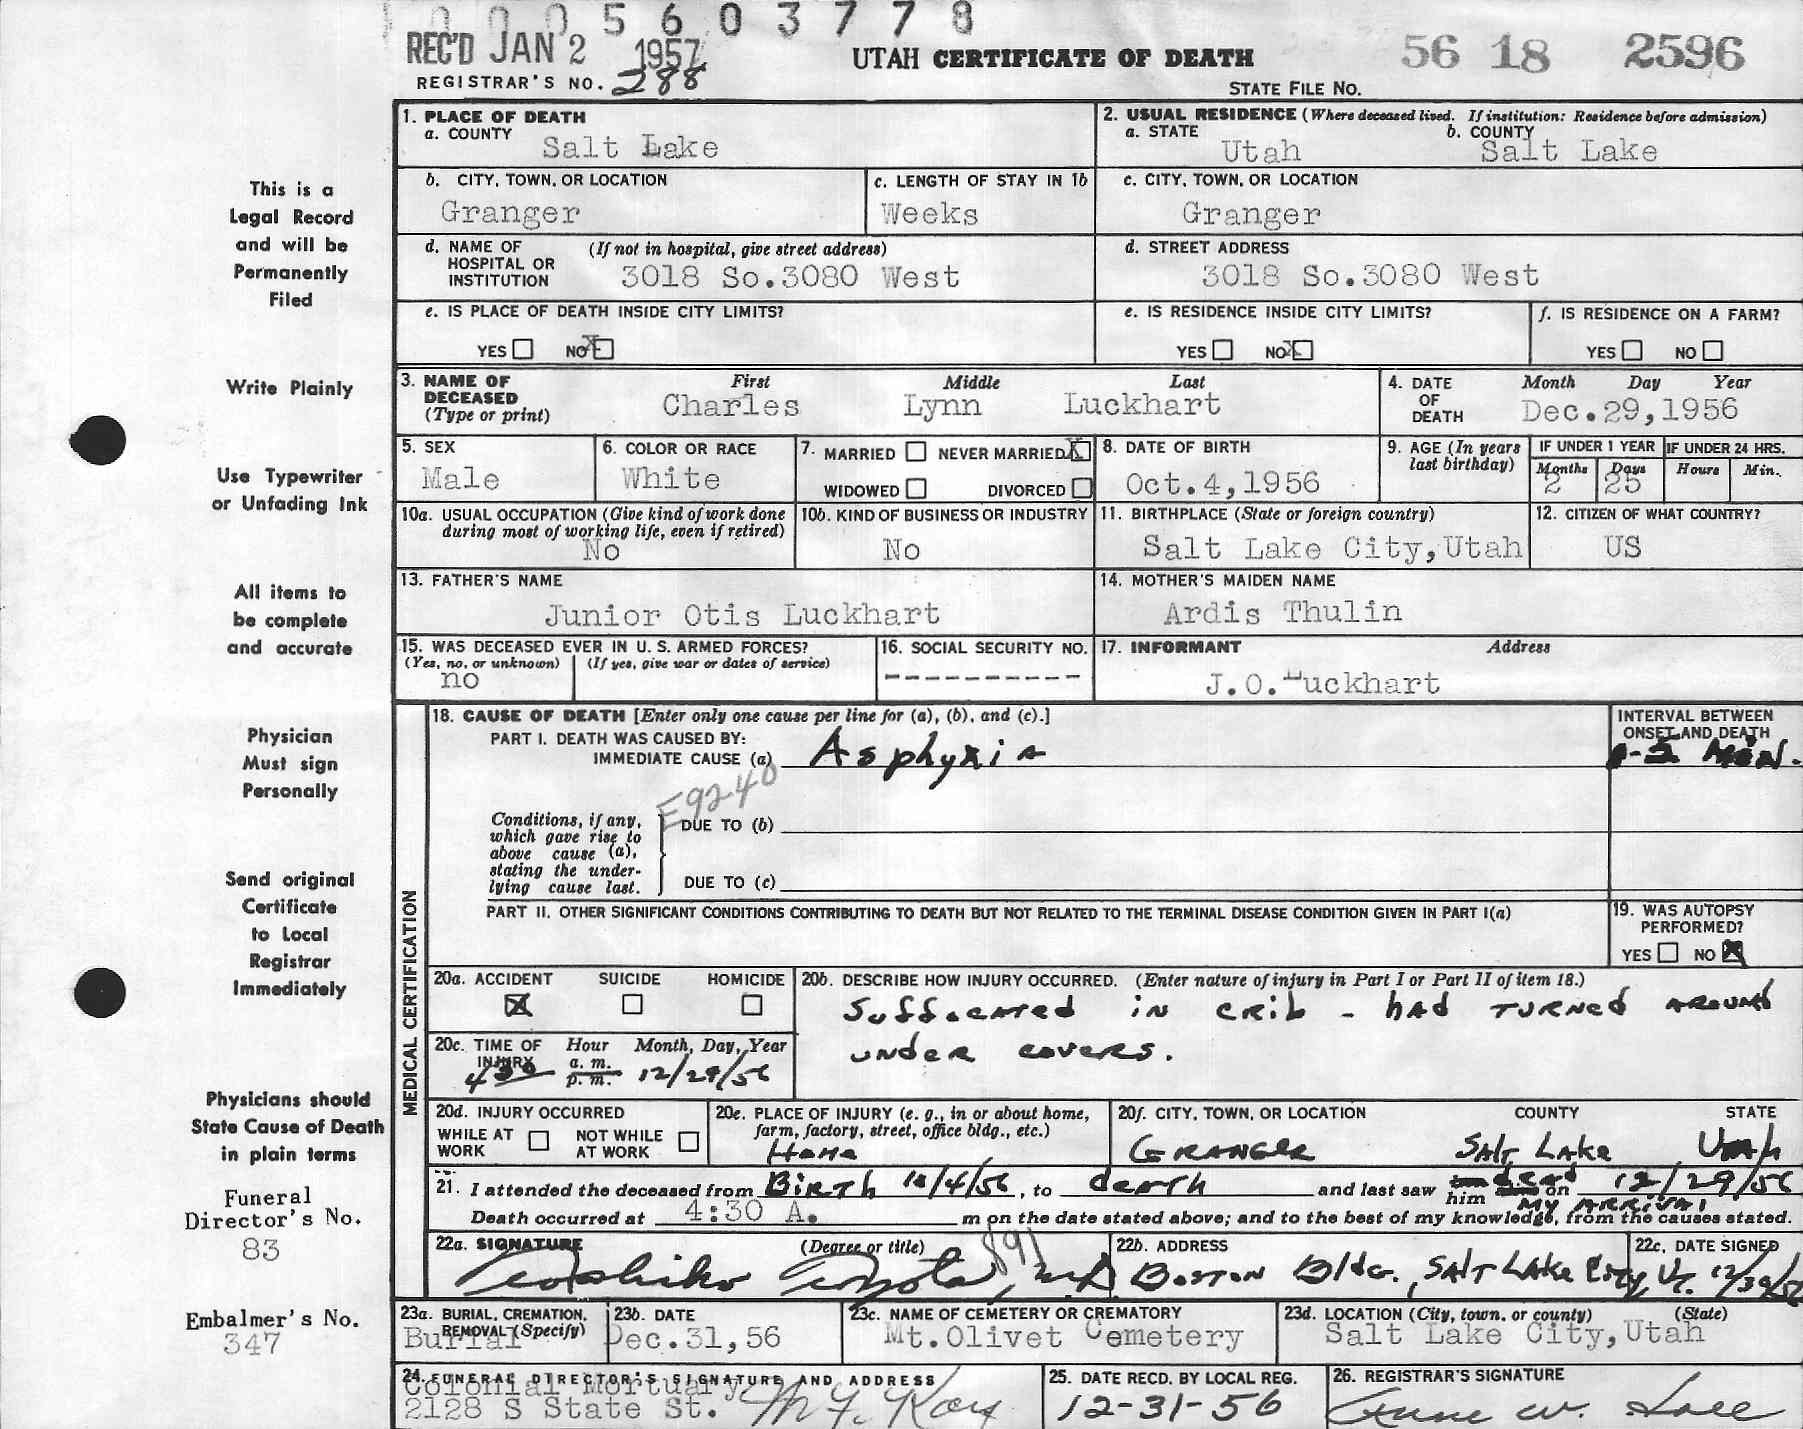 0005603778
REC'D JAN 2 1957
UTAH CERTIFICATE OF DEATH
56 18 2596
REGISTRAR'S NO. 288
STATE FILE NO.
This is a
Legal Record
and will be
Permanently
Filed
Write Plainly
Use Typewriter
or Unfading Ink
All items to
be complete
and accurate
Physician
Must sign
Personally
Send original
Certificate
to Local
Registrar
Immediately
Physicians should
State Cause of Death
in plain terms
Funeral
Director's No.
83
Embalmer's No.
347
1. PLACE OF DEATH
a. COUNTY
Salt Lake
2. USUAL RESIDENCE (Where deceased lived. If institution: Residence before admission)
a. STATE b. COUNTY
Utah Salt Lake
b. CITY, TOWN, OR LOCATION
Granger
c. LENGTH OF STAY IN 1b
Weeks
c. CITY, TOWN, OR LOCATION
Granger
d. NAME OF HOSPITAL OR INSTITUTION (If not in hospital, give street address)
3018 So.3080 West
d. STREET ADDRESS
3018 So.3080 West
e. IS PLACE OF DEATH INSIDE CITY LIMITS?
YES NO X
e. IS RESIDENCE INSIDE CITY LIMITS?
YES NO X
f. IS RESIDENCE ON A FARM?
YES NO
3. NAME OF DECEASED (Type or print)
First Middle Last
Charles Lynn Luckhart
4. DATE OF DEATH
Month Day Year
Dec.29,1956
5. SEX
Male
6. COLOR OR RACE
White
7. MARRIED NEVER MARRIED X
WIDOWED DIVORCED
8. DATE OF BIRTH
Oct.4,1956
9. AGE (In years last birthday)
IF UNDER 1 YEAR IF UNDER 24 HRS.
Months Days Hours Min.
2 25
10a. USUAL OCCUPATION (Give kind of work done during most of working life, even if retired)
No
10b. KIND OF BUSINESS OR INDUSTRY
No
11. BIRTHPLACE (State or foreign country)
Salt Lake City,Utah
12. CITIZEN OF WHAT COUNTRY?
US
13. FATHER'S NAME
Junior Otis Luckhart
14. MOTHER'S MAIDEN NAME
Ardis Thulin
15. WAS DECEASED EVER IN U. S. ARMED FORCES?
(Yes, no, or unknown) (If yes, give war or dates of service)
no
16. SOCIAL SECURITY NO.
----------
17. INFORMANT Address
J.O.Luckhart
MEDICAL CERTIFICATION
18. CAUSE OF DEATH [Enter only one cause per line for (a), (b), and (c).]
PART I. DEATH WAS CAUSED BY:
IMMEDIATE CAUSE (a) Asphyxia
INTERVAL BETWEEN ONSET AND DEATH
MIN.
E9240
Conditions, if any, which gave rise to above cause (a), stating the underlying cause last.
DUE TO (b)
DUE TO (c)
PART II. OTHER SIGNIFICANT CONDITIONS CONTRIBUTING TO DEATH BUT NOT RELATED TO THE TERMINAL DISEASE CONDITION GIVEN IN PART I(a)
19. WAS AUTOPSY PERFORMED?
YES NO X
20a. ACCIDENT SUICIDE HOMICIDE
X
20b. DESCRIBE HOW INJURY OCCURRED. (Enter nature of injury in Part I or Part II of item 18.)
Suffocated in crib - had turned around
under covers.
20c. TIME OF INJURY Hour a. m. p. m. Month, Day, Year
430 12/29/56
20d. INJURY OCCURRED
WHILE AT WORK NOT WHILE AT WORK
20e. PLACE OF INJURY (e. g., in or about home, farm, factory, street, office bldg., etc.)
Home
20f. CITY, TOWN, OR LOCATION COUNTY STATE
Granger Salt Lake Utah
21. I attended the deceased from Birth 10/4/56, to death and last saw him dead on 12/29/56
my arrival
Death occurred at 4:30 A. m on the date stated above; and to the best of my knowledge, from the causes stated.
22a. SIGNATURE (Degree or title)
M.D.
891
22b. ADDRESS
Boston Bldg., Salt Lake City, Ut.
22c. DATE SIGNED
12/30/56
23a. BURIAL, CREMATION, REMOVAL (Specify)
Burial
23b. DATE
Dec.31,56
23c. NAME OF CEMETERY OR CREMATORY
Mt.Olivet Cemetery
23d. LOCATION (City, town, or county) (State)
Salt Lake City,Utah
24. FUNERAL DIRECTOR'S SIGNATURE AND ADDRESS
Colonial Mortuary
2128 S State St.
25. DATE RECD. BY LOCAL REG.
12-31-56
26. REGISTRAR'S SIGNATURE